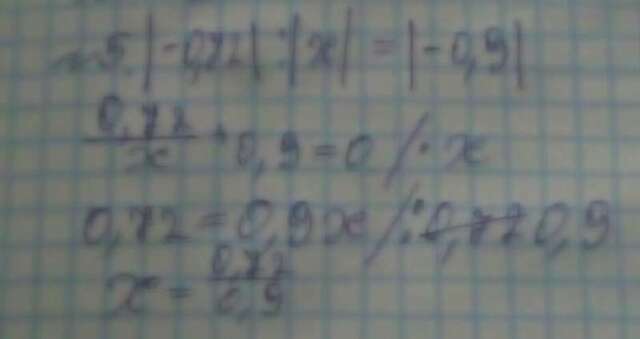 №5. |-0,72| : |x| = |-0,9|
0,72/x + 0,9 = 0 / · x
0,72 = 0,9x / : 0,72 0,9
x = 0,72/0,9